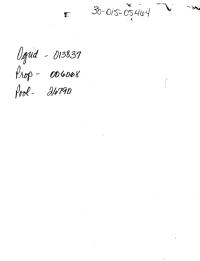 30-015-05464
Ogrid - 013837
Prop - 006008
Pool - 26790